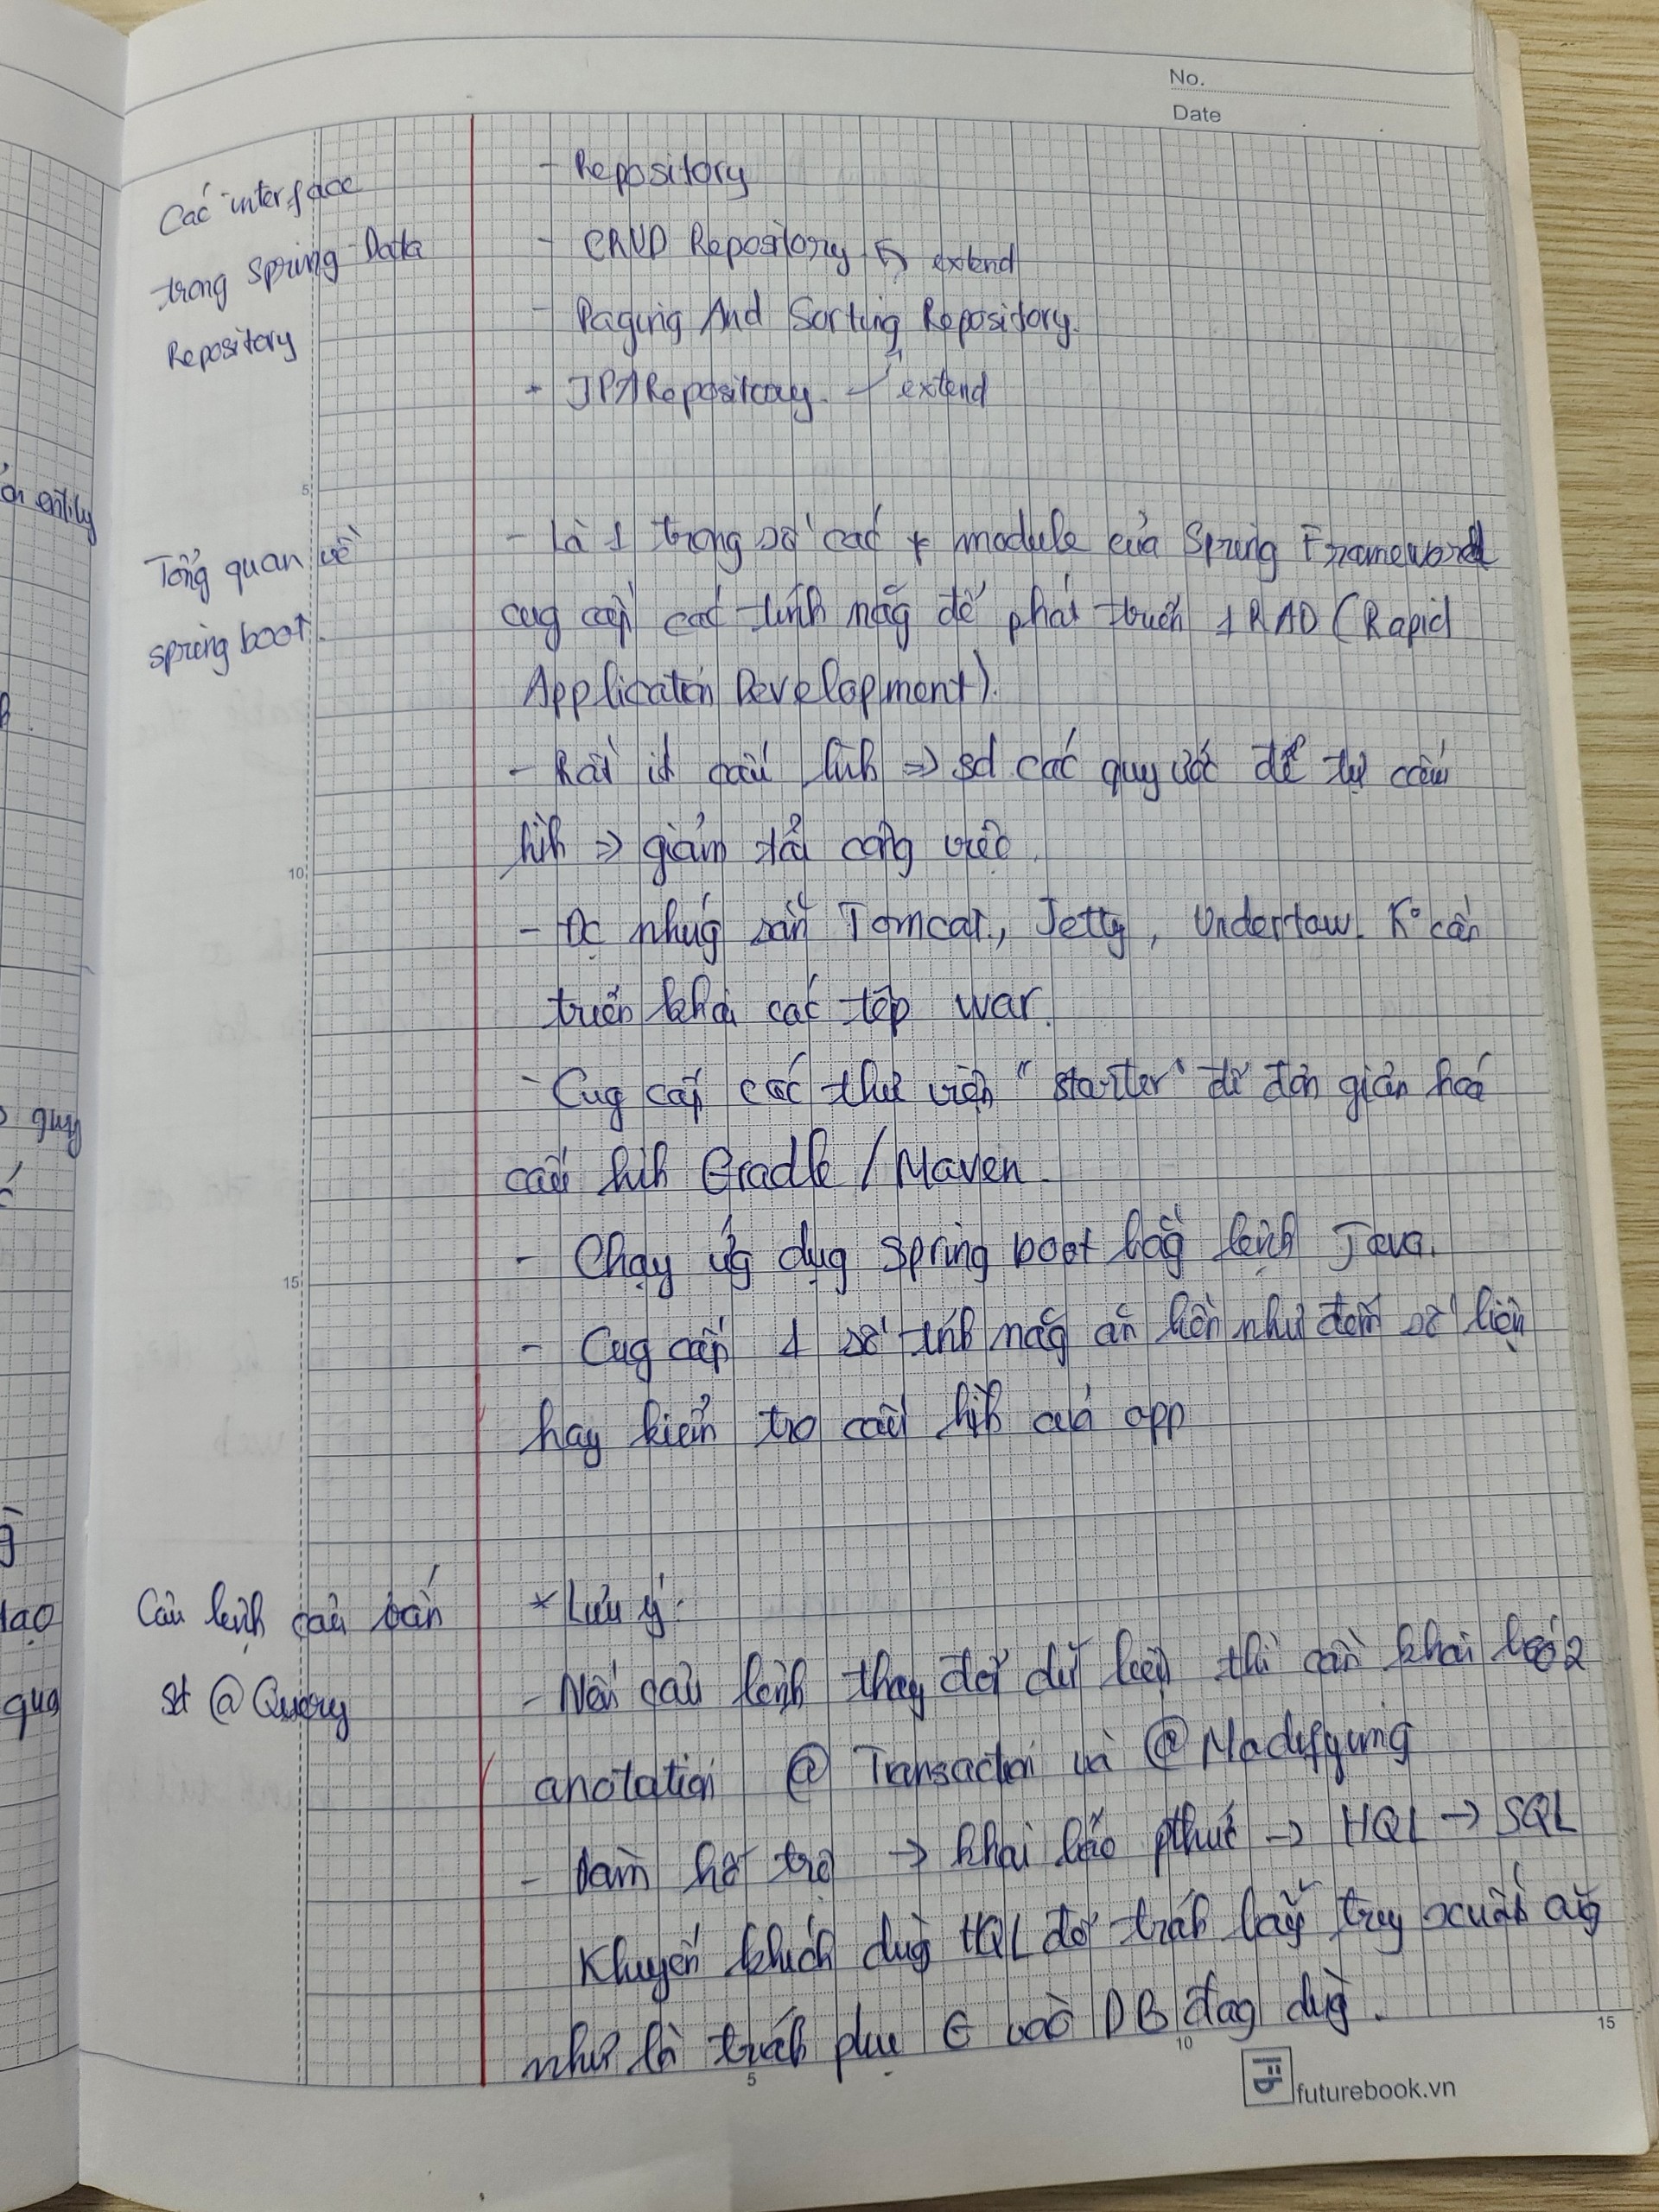 No.
Date
Các interface
trong Spring Data
Repository
- Repository
- CRUD Repository extend
- Paging And Sorting Repository.
- JPA Repository. extend
5
Tổng quan về
spring boot.
- Là 1 trong số các module của Spring Framework
cug cấp các tính năg để phát triển 1 RAD (Rapid
Application Development).
- Rất ít cấu hìh => sd các quy ước để tự cấu
hìh => giảm tải côg việc.
10
- Đc nhúg sẵn Tomcat, Jetty, Undertow. K° cần
triển khai các tệp war.
- Cug cấp các thư viện "starter" để đơn giản hoá
cấu hìh Gradle / Maven.
- Chạy ứg dụg Spring boot bằg lệnh Java.
15
- Cug cấp 1 số tính năg ăn liền như đếm số liệu
hay kiểm tra cấu hìh của app
Câu lệnh truy vấn
sd @Query
* Lưu ý:
- Nếu câu lệnh thay đổi dữ liệu thì cần khai báo 2
anotation @Transaction và @Modifying
- hỗ trợ -> khai báo pthức -> HQL -> SQL
Khuyến khích dùg HQL để tráh truy xuất cũg
như là tráh phụ € vào DB đag dùg.
5
10
15
futurebook.vn
ơn entity
quy
tạo
qua